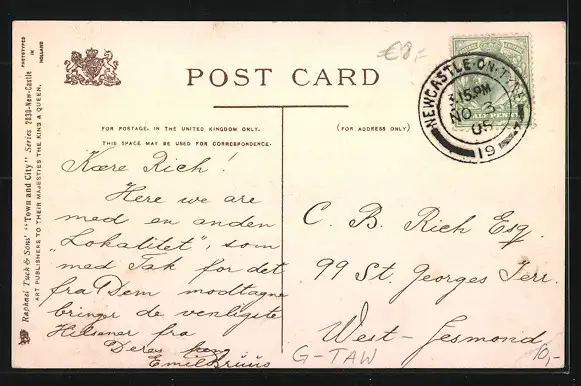 PHOTOTYPED IN HOLLAND
Raphael Tuck & Sons' "Town and City" Series 2830-New-Castle
ART PUBLISHERS TO THEIR MAJESTIES THE KING & QUEEN.
€8,-
POST CARD
FOR POSTAGE, IN THE UNITED KINGDOM ONLY,
THIS SPACE MAY BE USED FOR CORRESPONDENCE.
(FOR ADDRESS ONLY)
NEWCASTLE-ON-TYNE
15PM
NO 3
05
19
Kære Rich!
Here we are
med en anden
"Lokalitet", som
med Tak for det
fra Dem modtagne
bringer de venligste
Hilsener fra
Deres
Emil Bruus
C. B. Rich Esq.
99 St. Georges Terr.
West-Jesmond
G-TAW
10,-